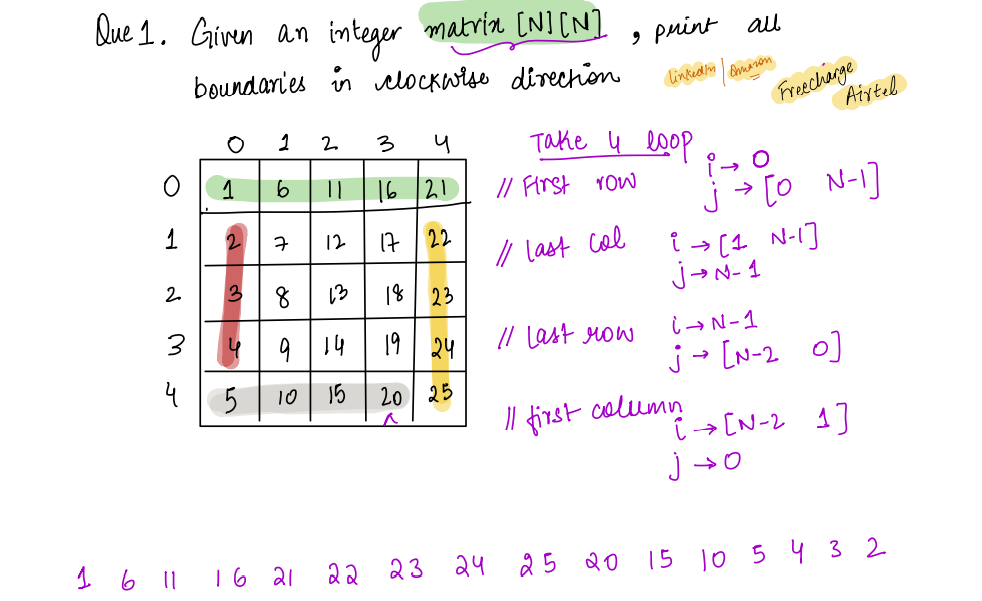 Que 1. Given an integer matrix [N][N], print all
boundaries in clockwise direction
LinkedIn | Amazon Freecharge
Airtel
0 1 2 3 4
0 1 6 11 16 21
1 2 7 12 17 22
2 3 8 13 18 23
3 4 9 14 19 24
4 5 10 15 20 25
Take 4 loop
// First row i → 0
j → [0 N-1]
// last col i → [1 N-1]
j → N-1
// last row i → N-1
j → [N-2 0]
// first column
i → [N-2 1]
j → 0
1 6 11 16 21 22 23 24 25 20 15 10 5 4 3 2